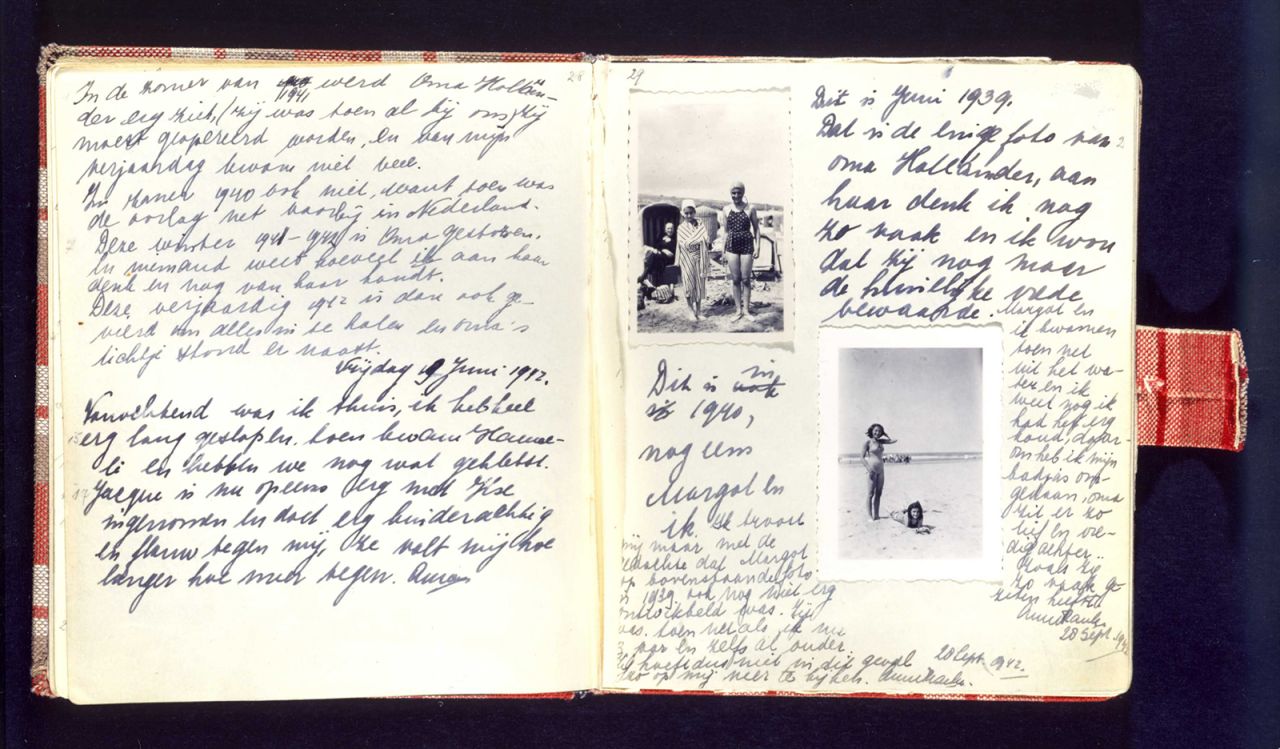 28
In de zomer van 1941 werd Oma Hollän-
der erg ziek, (zij was toen al bij ons) zij
moest geopereerd worden, en van mijn
verjaardag kwam niet veel.
In zomer 1940 ook niet, want toen was
de oorlog net voorbij in Nederland.
Deze winter 1941-1942 is Oma gestorven.
En niemand weet hoeveel ik aan haar
denk en nog van haar houdt.
Deze verjaardig 1942 is dan ook ge-
vierd om alles in te halen en oma's
lichtje stond er naast.
Vrijdag 19 Juni 1942.
Vanochtend was ik thuis, ik heb heel
erg lang geslapen, toen kwam Hanne-
li en hebben we nog wat gekletst.
Jacque is nu opeens erg met Ilse
ingenomen en doet erg kinderachtig
en flauw tegen mij, ze valt mij hoe
langer hoe meer tegen. Anne
29
Dit is Juni 1939.
Dat is de enige foto van
oma Holländer, aan
haar denk ik nog
zo vaak en ik wou
dat zij nog maar
de huiselijke vrede
bewaarde.
Margot en
ik kwamen
toen net
uit het wa-
ter en ik
weet nog ik
had het erg
koud, daar-
om heb ik mijn
badjas om-
gedaan, oma
zit er zo
lief en vre-
dig achter.
Zoals zij
zo vaak ge-
zeten heeft
Anne Frank.
28 Sept. 1942
Dit is in
1940,
nog eens
Margot en
ik. Ik troost
mij maar met de
gedachte dat Margot
op bovenstaande foto
in 1939 ook nog niet erg
ontwikkeld was. Zij
was toen net als ik nu
13 jaar en zelfs al ouder.
Zij hoeft dus niet in dit geval
zo op mij neer te kijken. Anne Frank.
28 Sept. 1942.